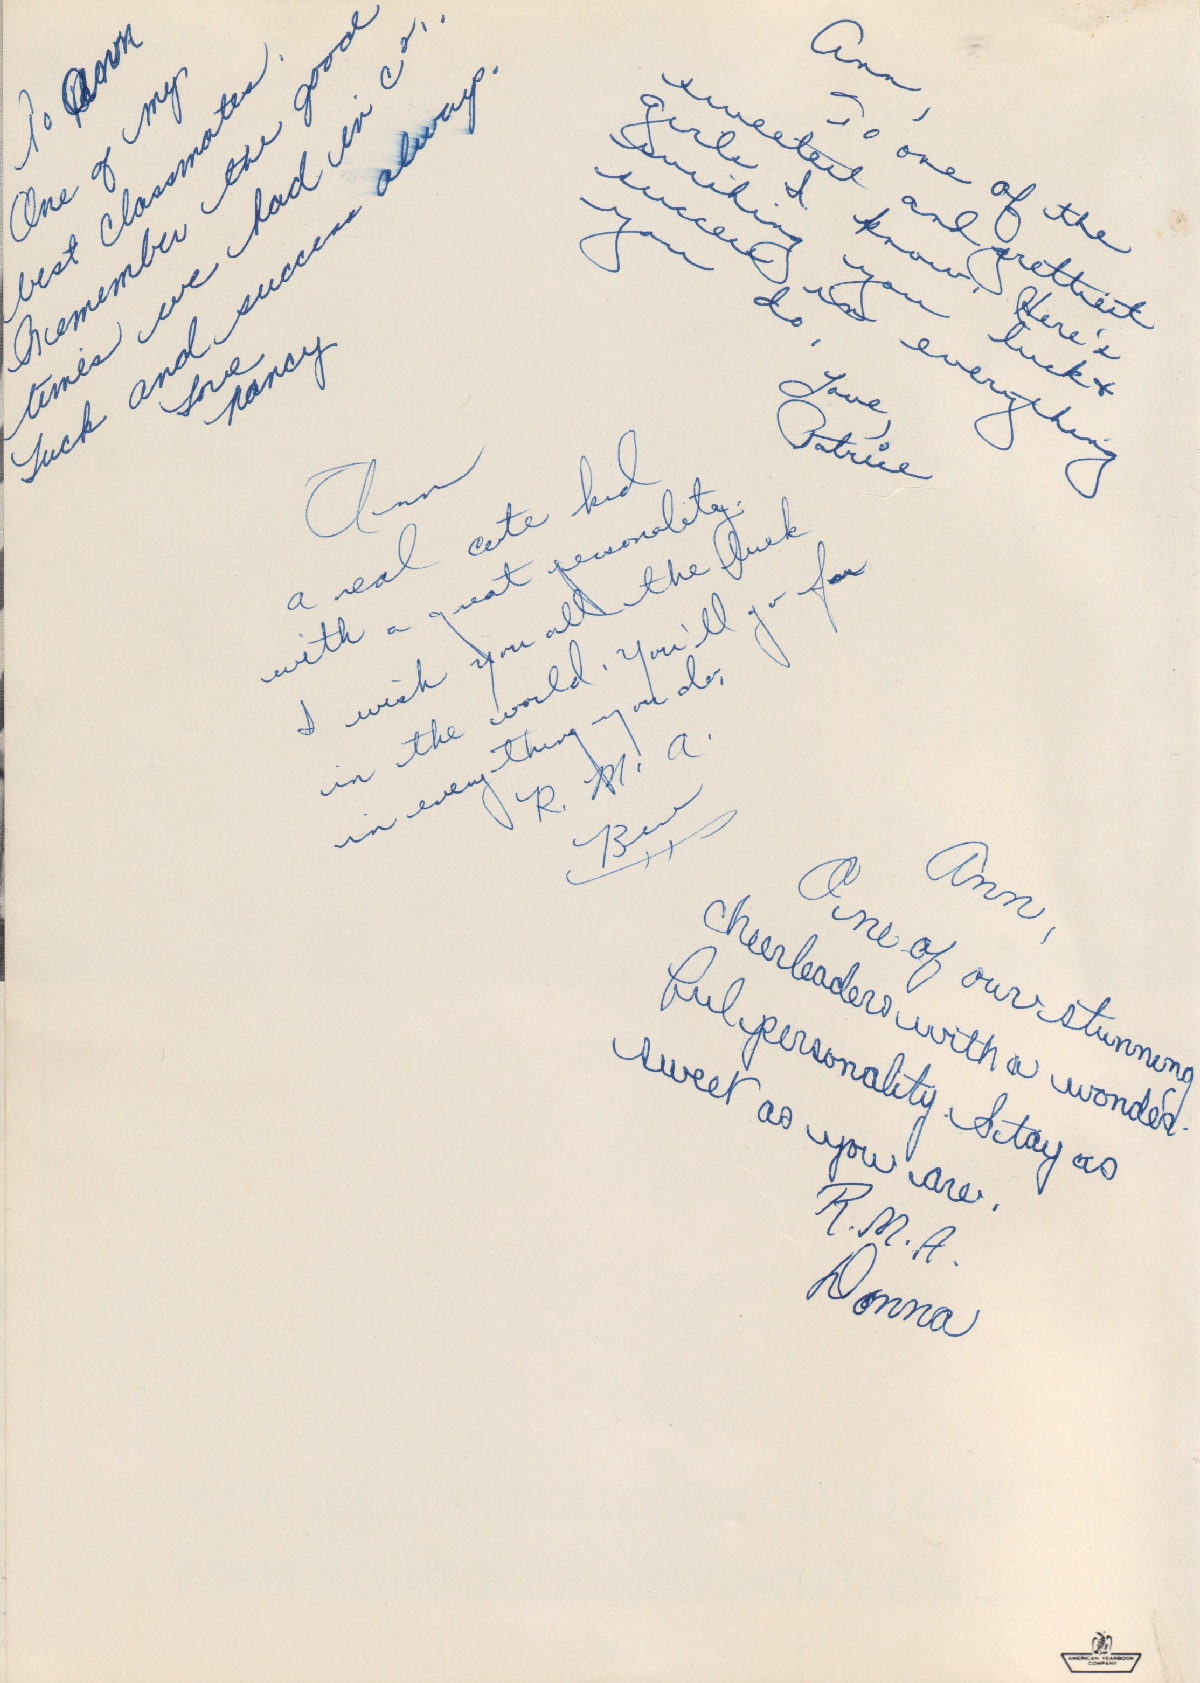 To Ann
One of my
best classmates.
Remember the good
times we had in C a..
Luck and success always.
Love
Nancy
Ann,
To one of the
sweetest and prettiest
girls I know. Here's
wishing you luck &
success in everything
you do.
Love,
Patrice
Ann
a real cute kid
with a great personality.
I wish you all the luck
in the world. You'll go far
in everything you do.
R. M. A.
Bev
Ann,
One of our stunning
cheerleaders with a wonder-
ful personality. Stay as
sweet as you are.
R.M.A.
Donna
AMERICAN YEARBOOK
COMPANY